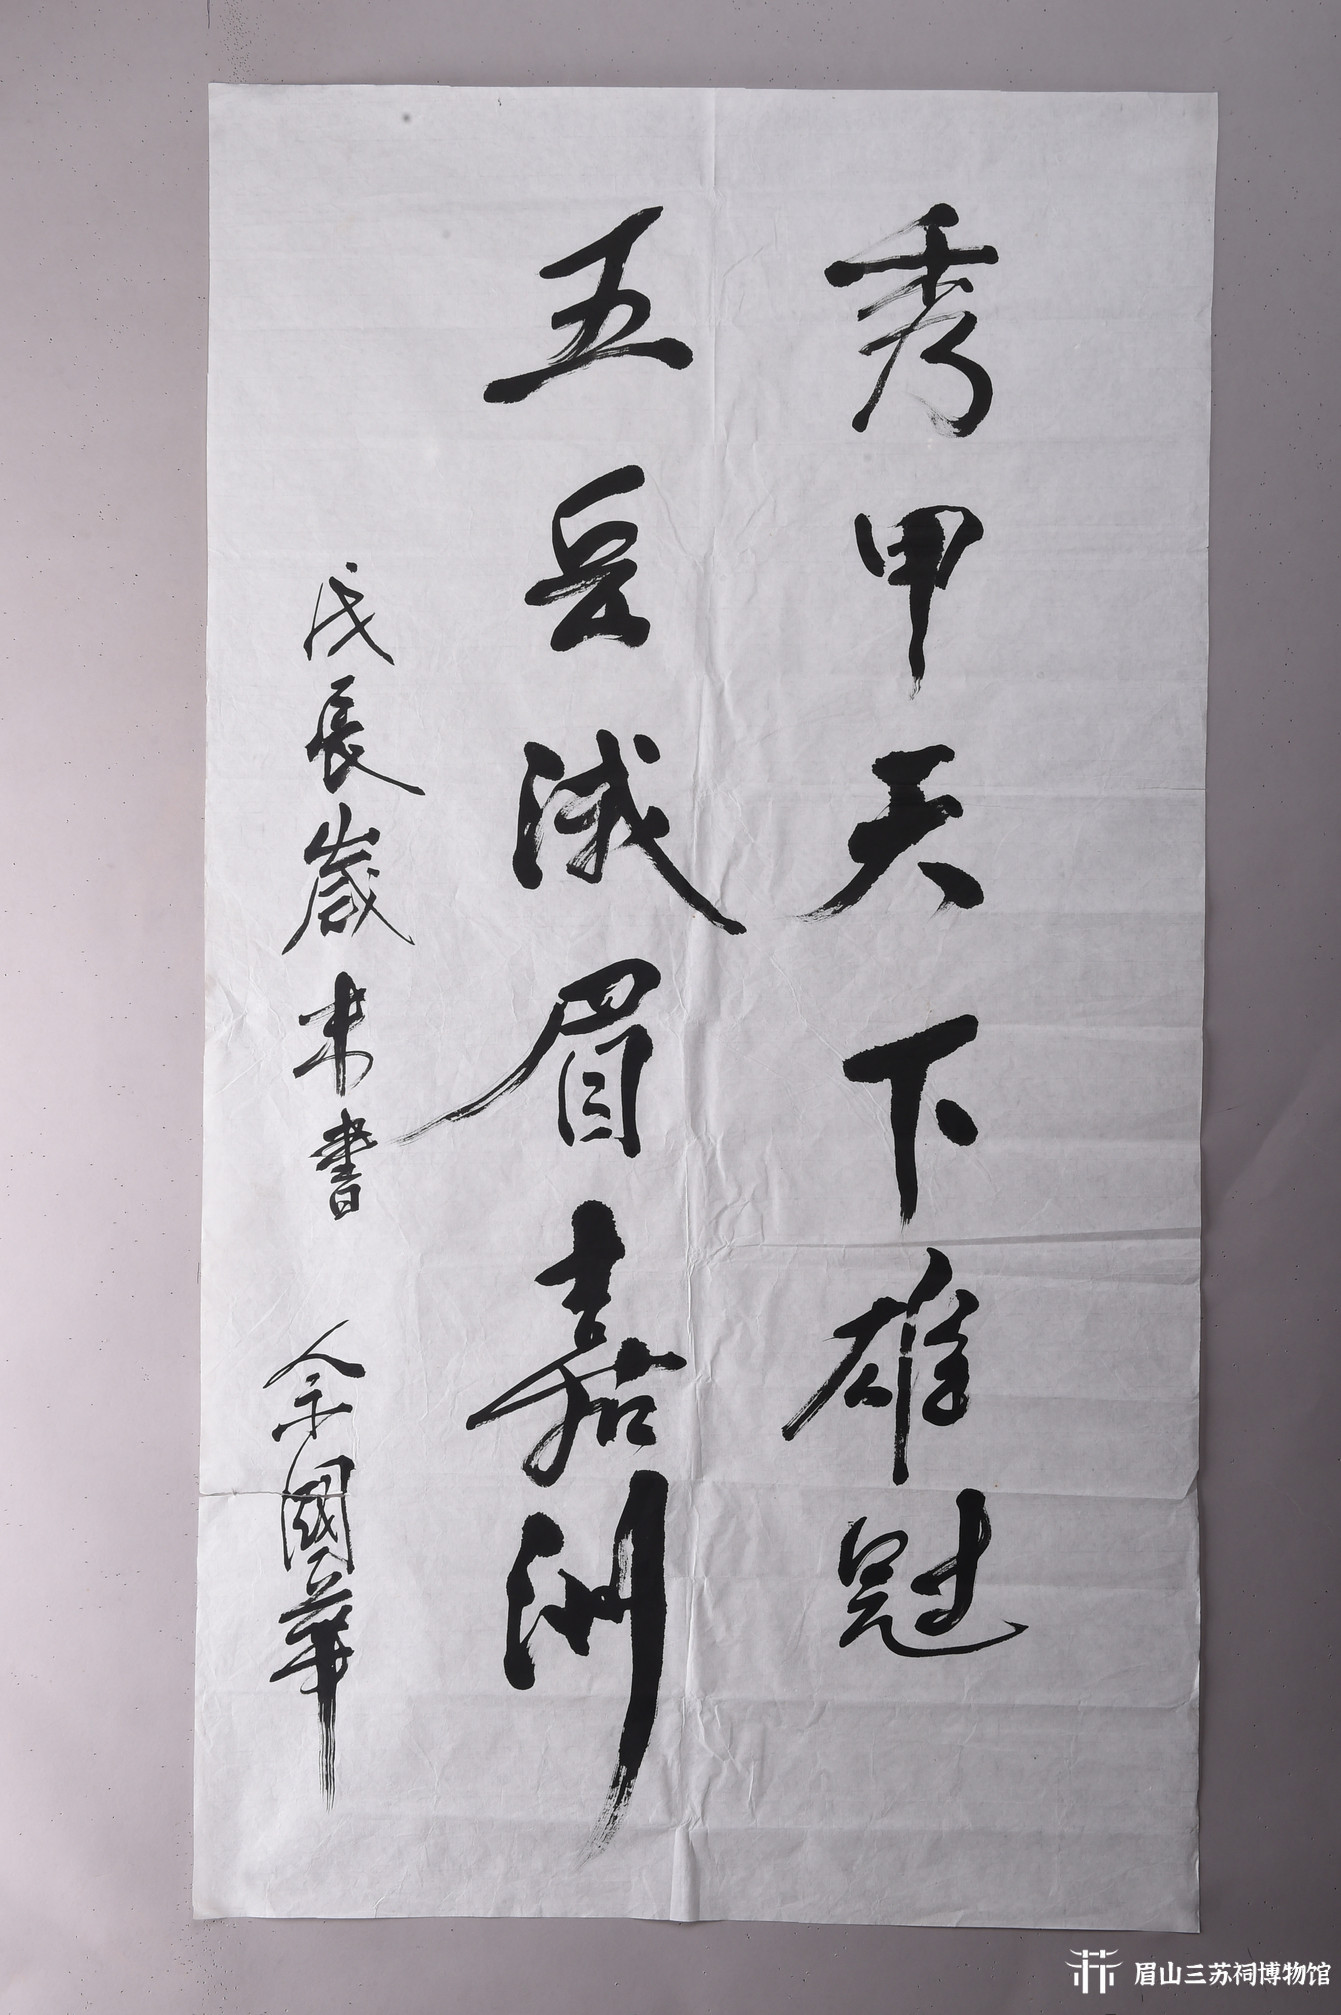 秀甲天下雄冠
五岳涐眉嘉洲
戊辰歲末書 余國華
眉山三苏祠博物馆